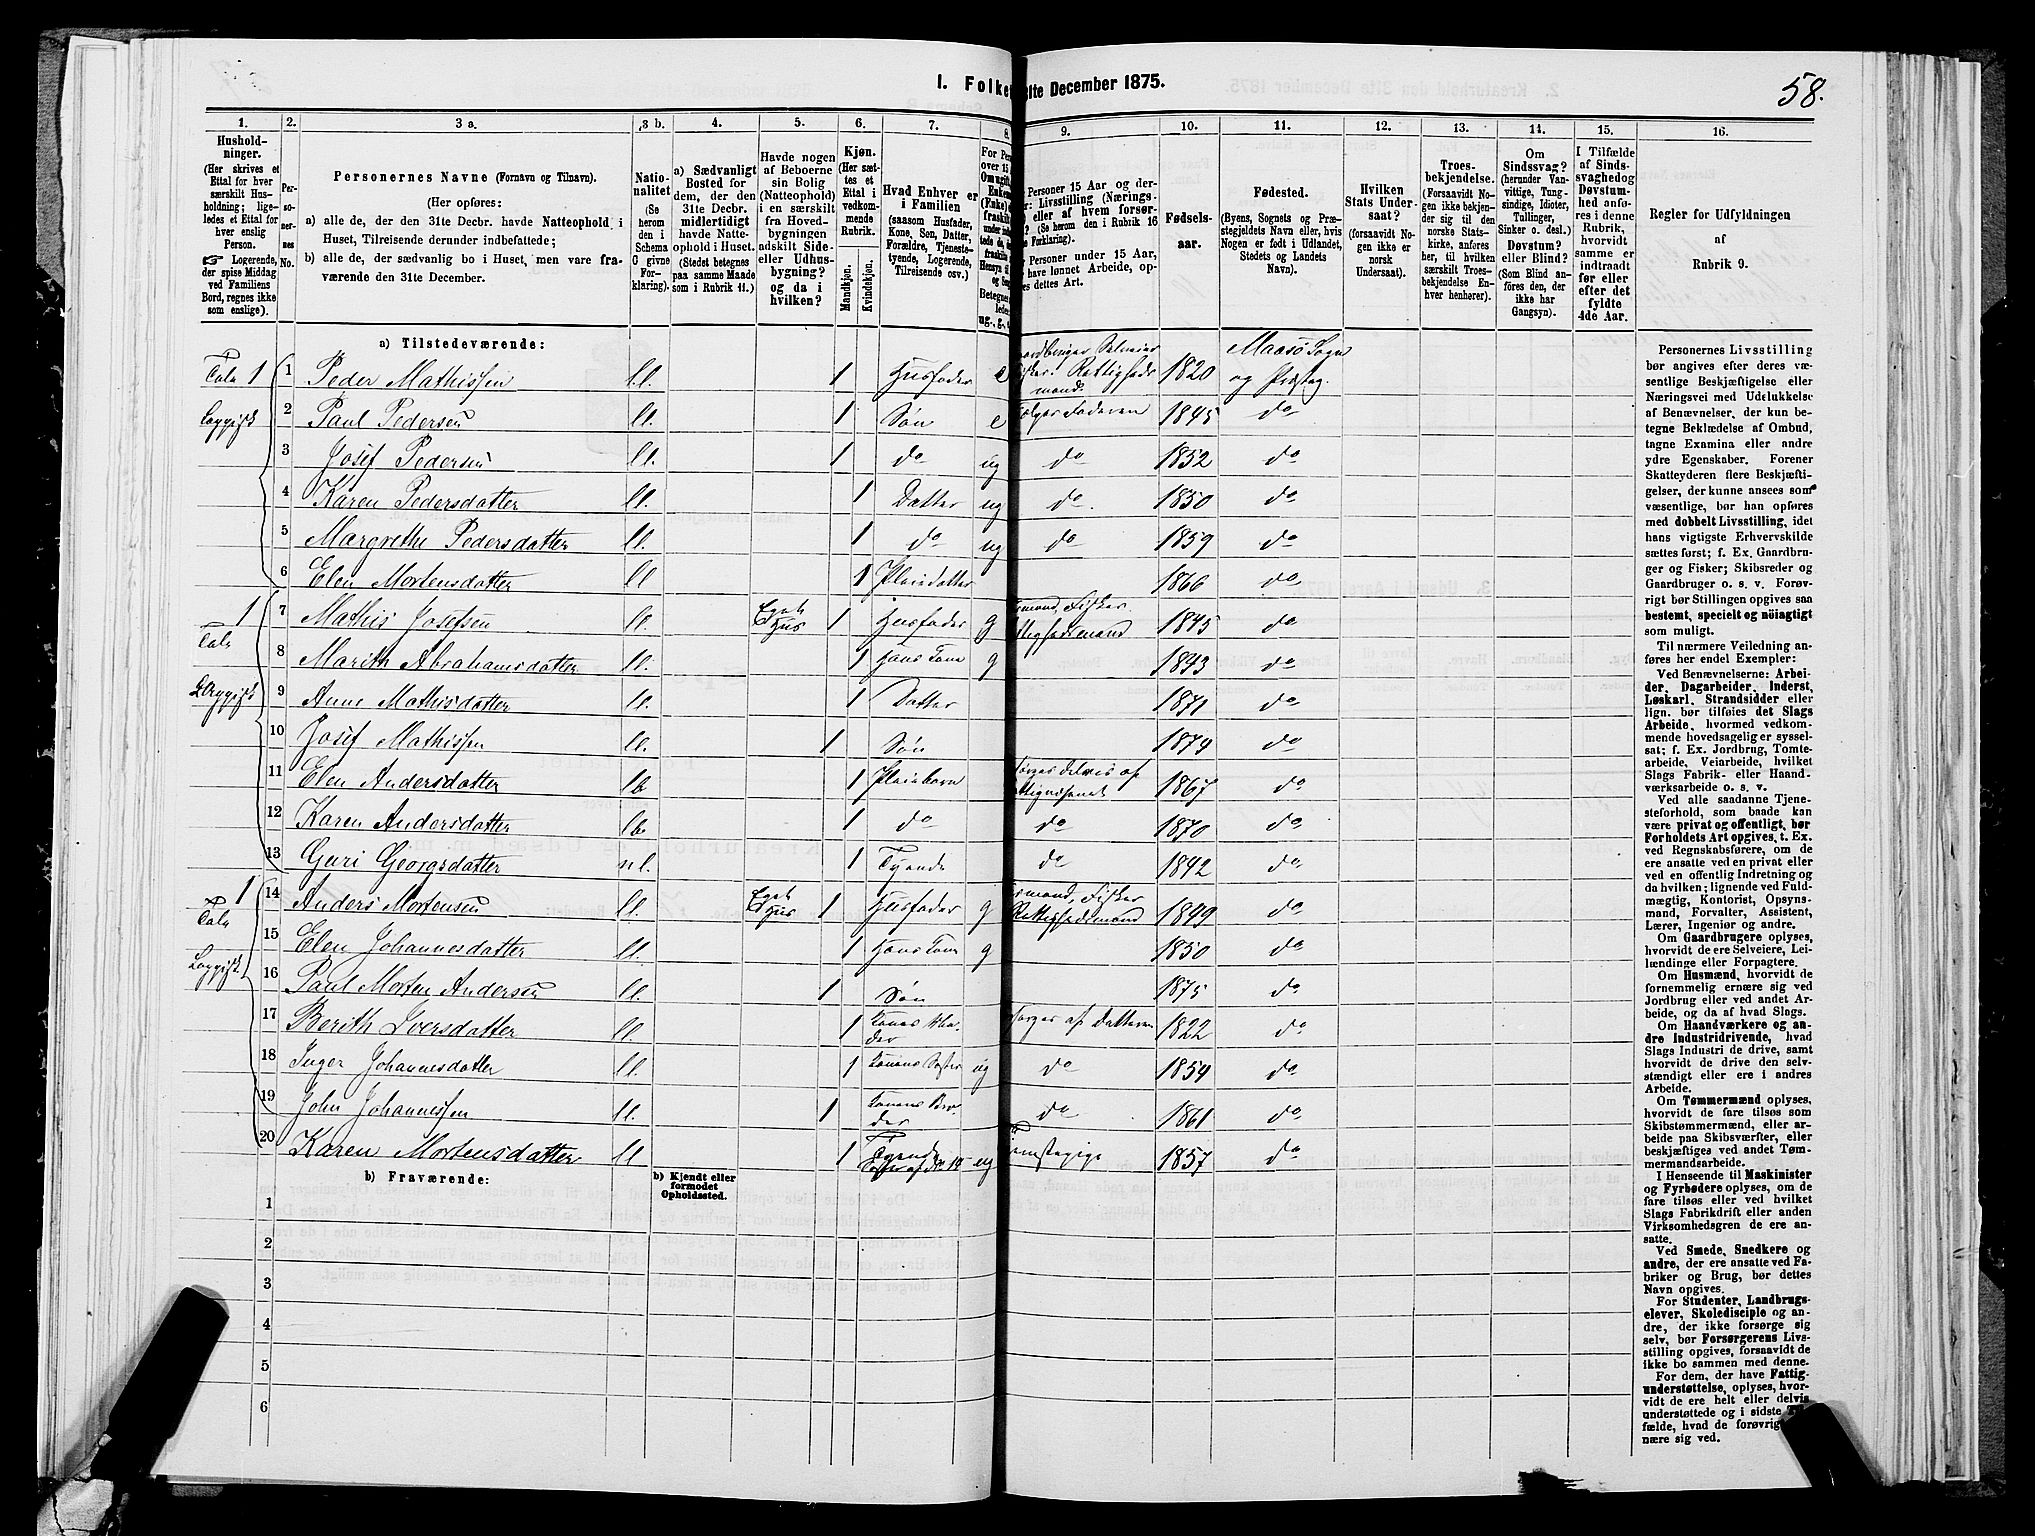 58.
1. Folke lte December 1875.
1. 2. 3 a. 3 b. 4. 5. 6. 7. 8. 9. 10. 11. 12. 13. 14. 15. 16.
Hushold-
ninger.
(Her skrives et
Ettal for hver
særskilt Hus-
holdning; lige-
ledes et Ettal for
hver enslig
Person.
☞ Logerende,
der spise Middag
ved Familiens
Bord, regnes ikke
som enslige).
Per-
so-
ner-
nes
No.
Personernes Navne (Fornavn og Tilnavn).
(Her opføres:
a) alle de, der den 31te Decbr. havde Natteophold i
Huset, Tilreisende derunder indbefattede;
b) alle de, der sædvanlig bo i Huset, men vare fra-
værende den 31te December.
Natio-
nalitet
(Se
herom
den i
Schema
C givne
For-
klaring).
a) Sædvanligt
Bosted for
dem, der den
31te Decbr.
midlertidigt
havde Natte-
ophold i Huset.
(Stedet betegnes
paa samme Maade
som i Rubrik 11.)
Havde nogen
af Beboerne
sin Bolig
(Natteophold)
i en særskilt
fra Hoved-
bygningen
adskilt Side-
eller Udhus-
bygning?
og da i
hvilken?
Kjøn.
(Her sæt-
tes et
Ettal i
vedkom-
mende
Rubrik.
Mandkjøn.
Kvindekjøn.
Hvad Enhver er
i Familien
(saasom Husfader,
Kone, Søn, Datter,
Forældre, Tjeneste-
tyende, Logerende,
Tilreisende osv.)
For Per
over 15
Omugift
Enke
(Enke)
frask
ug., g.,
Personer 15 Aar og der-
r: Livsstilling (Nærings-
eller af hvem forsør-
? (Se herom den i Rubrik 16
e Forklaring).
Personer under 15 Aar,
have lønnet Arbeide, op-
es dettes Art.
Fødsels-
aar.
Fødested.
(Byens, Sognets og Præ-
stegjeldets Navn eller, hvis
Nogen er født i Udlandet,
Stedets og Landets
Navn).
Hvilken
Stats Under-
saat?
(forsaavidt No-
gen ikke er
norsk
Undersaat).
Troes-
bekjendelse.
(Forsaavidt No-
gen ikke bekjen-
der sig til den
norske Stats-
kirke, anføres
her, til hvilken
særskilt Troes-
bekjendelse En-
hver henhører).
Om
Sindssvag?
(herunder Van-
vittige, Tung-
sindige, Idioter,
Tullinger,
Sinker o. desl.)
Døvstum?
eller Blind?
(Som Blind an-
føres den, der
ikke har
Gangsyn).
I Tilfælde
af Sinds-
svaghed og
Døvstum-
hed anfø-
res i denne
Rubrik,
hvorvidt
samme er
indtraadt
før eller
efter det
fyldte
4de Aar.
Regler for Udfyldningen
af
Rubrik 9.
a) Tilstedeværende:
1 1 Peder Mathissen ll. 1 Husfader e Rettigheds mand. 1820 Maasø Sogn og Præstegj.
2 Paul Pedersen ll. 1 Søn e Faderen 1845 do
3 Josef Pedersen ll. 1 do ug do 1852 do
4 Karen Pedersdatter ll. 1 Datter ug do. 1850 do
5 Margrethe Pedersdatter ll. 1 do ug do 1859 do
6 Elen Mortensdatter ll 1 Pleiedatter 1866 do
1 7 Mathis Josefsen ll. Eget Hus 1 Husfader g smand, Fisker. ttighedsmand 1845 do
8 Marith Abrahamsdatter ll. 1 Hans Kone g 1843 do
9 Anne Mathisdatter ll. 1 Datter 1871 do
10 Josef Mathissen ll. 1 Søn 1874 do
11 Elen Andersdatter lb 1 Pleiebarn sørges delvis af attigvæsenet 1867 do
12 Karen Andersdatter lb. 1 do do 1870 do
13 Guri Georgsdatter nl. 1 Tyende do 1842 do
1 14 Anders Mortensen ll. Eget Hus 1 Husfader g smand, Fisker Rettighedsmand 1849 do
15 Elen Johannesdatter ll. 1 Hans Kone g 1850 do
16 Paul Morten Andersen ll. 1 Søn 1875 do
17 Berith Iversdatter ll. 1 Konens Mo- der sørges af Datteren 1822 do
18 Inger Johannesdatter ll. 1 Konens Søster ug do 1854 do
19 John Johannessen ll. 1 Konens Bro- der do 1861 do
20 Karen Mortensdatter ll 1 Tyende ug Tjenestepige 1857 do
b) Fraværende:
b) Kjendt eller
formodet
Opholdssted.
1
2
3
4
5
6
Personernes Livsstilling
bør angives efter deres væ-
sentlige Beskjæftigelse eller
Næringsvei med Udelukkelse
af Benævnelser, der kun be-
tegne Beklædelse af Ombud,
tagne Examina eller andre
ydre Egenskaber. Forener
Skatteyderen flere Beskjæfti-
gelser, der kunne ansees som
væsentlige, bør han opføres
med dobbelt Livsstilling, idet
hans vigtigste Erhvervskilde
sættes først; f. Ex. Gaardbru-
ger og Fisker; Skibsreder og
Gaardbruger o. s. v. Forøv-
rigt bør Stillingen opgives saa
bestemt, specielt og nöiagtigt
som muligt.
Til nærmere Veiledning an-
føres her endel Exempler:
Ved Benævnelserne: Arbei-
der, Dagarbeider, Inderst,
Løskarl, Strandsidder eller
lign. bør tilføies det Slags
Arbeide, hvormed vedkom-
mende hovedsagelig er syssel-
sat; f. Ex. Jordbrug, Tomte-
arbeide, Veiarbeide, hvilket
Slags Fabrik- eller Haand-
værksarbeide o. s. v.
Ved alle saadanne Tjene-
steforhold, som baade kan
være privat og offentligt, bør
Forholdets Art opgives, t. Ex.
ved Regnskabsførere, om de
ere ansatte ved en privat eller
ved en offentlig Indretning og
da hvilken; lignende ved Fuld-
mægtig, Kontorist, Opsyns-
mand, Forvalter, Assistent,
Lærer, Ingeniør og andre.
Om Gaardbrugere oplyses,
hvorvidt de ere Selveiere, Lei-
lændinge eller Forpagtere.
Om Husmænd, hvorvidt de
fornemmelig ernære sig ved
Jordbrug eller ved andet Ar-
beide, og da af hvad Slags.
Om Haandværkere og an-
dre Industridrivende, hvad
Slags Industri de drive, samt
hvorvidt de drive den selv-
stændigt eller ere i andres
Arbeide.
Om Tømmermænd oplyses,
hvorvidt de fare tilsøs som
Skibstømmermænd, eller ar-
beide paa Skibsværfter, eller
beskjæftiges ved andet Tøm-
mermandsarbeide.
I Henseende til Maskinister
og Fyrbødere oplyses, om de
fare tilsøs eller ved hvilket
Slags Fabrikdrift eller anden
Virksomhedsgren de ere an-
satte.
Ved Smede, Snedkere og
andre, der ere ansatte ved Fa-
briker og Brug, bør dettes
Navn opgives.
For Studenter, Landbrugs-
elever, Skoledisciple og an-
dre, der ikke forsørge sig
selv, bør Forsørgerens Livs-
stilling opgives, forsaavidt de
ikke bo sammen med denne.
For dem, der have Fattig-
understøttelse, oplyses, hvor-
vidt de ere helt eller delvis
understøttede og i sidste
fælde, hvad de forøvrigt
nære sig ved.